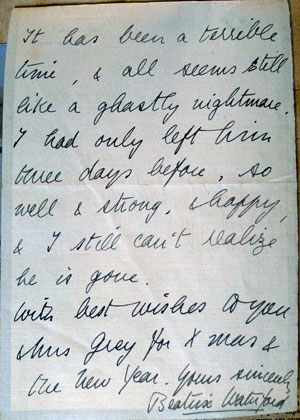 It has been a terrible
time, & all seems still
like a ghastly nightmare.
I had only left him
three days before, so
well & strong, & happy,
& I still can't realize
he is gone.
With best wishes to you
& Mrs Grey for Xmas &
the New Year. Yours sincerely
Beatrix Waterford